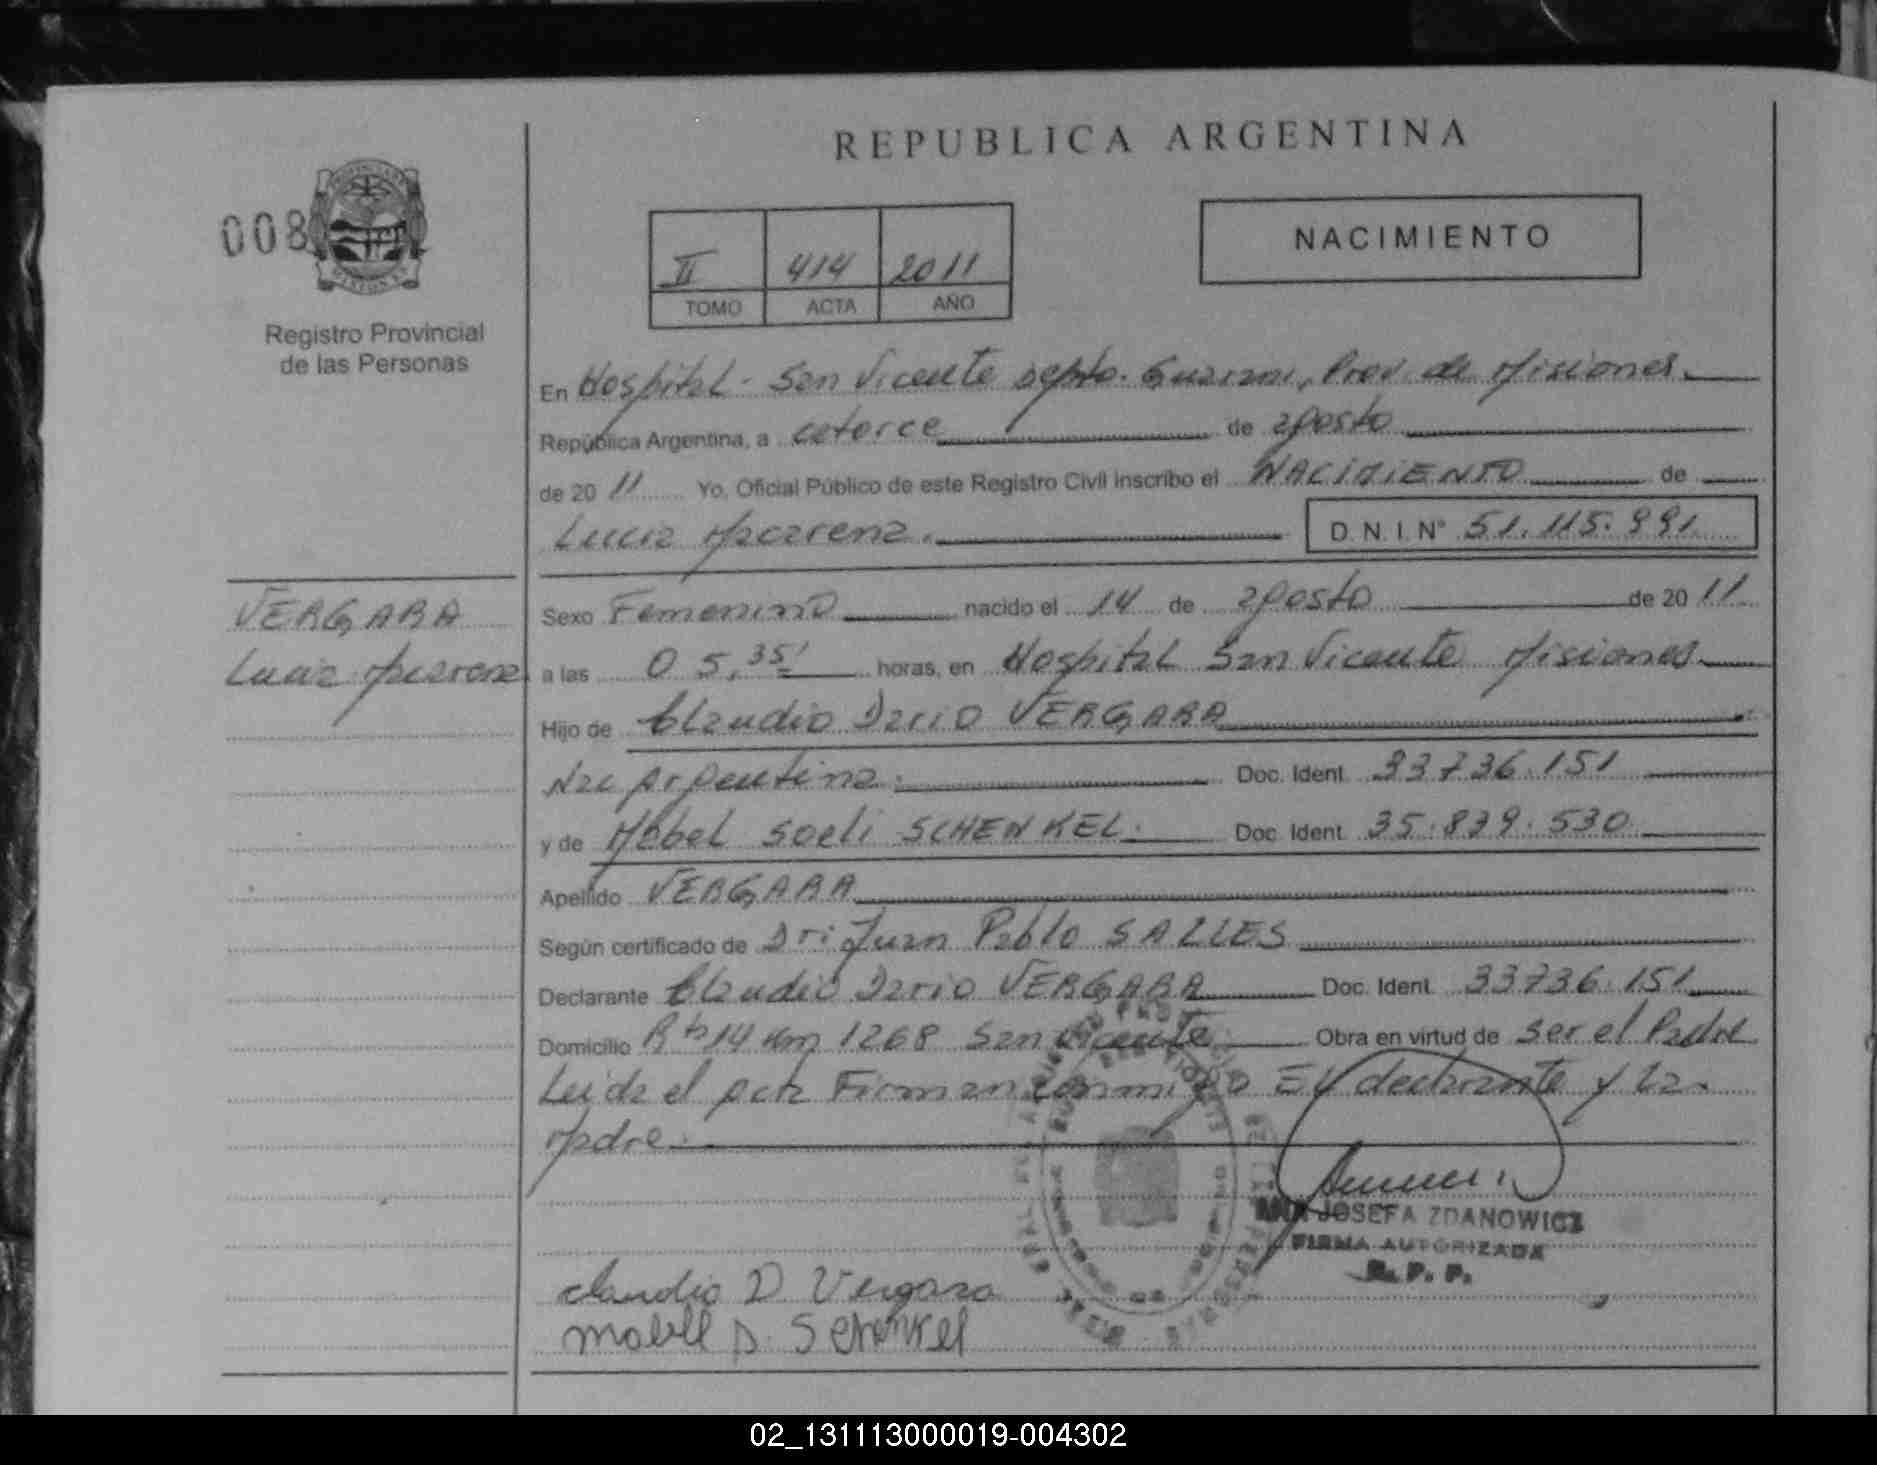 REPUBLICA ARGENTINA
008
NACIMIENTO
II 414 2011
TOMO ACTA AÑO
Registro Provincial
de las Personas
En Hospital - San Vicente Depto. Guarani, Prov. de Misiones.
República Argentina, a catorce de agosto
de 20 11 Yo, Oficial Público de este Registro Civil inscribo el NACIMIENTO de
Lucia Macarena. D.N.I.Nº 51.115.991
VERGARA
Lucia Macarena
Sexo Femenino nacido el 14 de agosto de 20 11
a las 05,35' horas, en Hospital San Vicente Misiones
Hijo de Claudio Dario VERGARA
Nac Argentina. Doc. Ident. 33736.151
y de Mabel Soeli SCHENKEL. Doc. Ident. 35.839.530
Apellido VERGARA
Según certificado de Dr: Juan Pablo SALLES
Declarante Claudio Dario VERGARA Doc. Ident. 33736.151
Domicilio Rta 14 Km 1268 San Vicente Obra en virtud de ser el Padre
Leida el acta Firman conmigo El declarante y La
Madre.
ANA JOSEFA ZDANOWICZ
FIRMA AUTORIZADA
R. P. P.
Claudio D Vergara
Mabel S. Schenkel
02_131113000019-004302